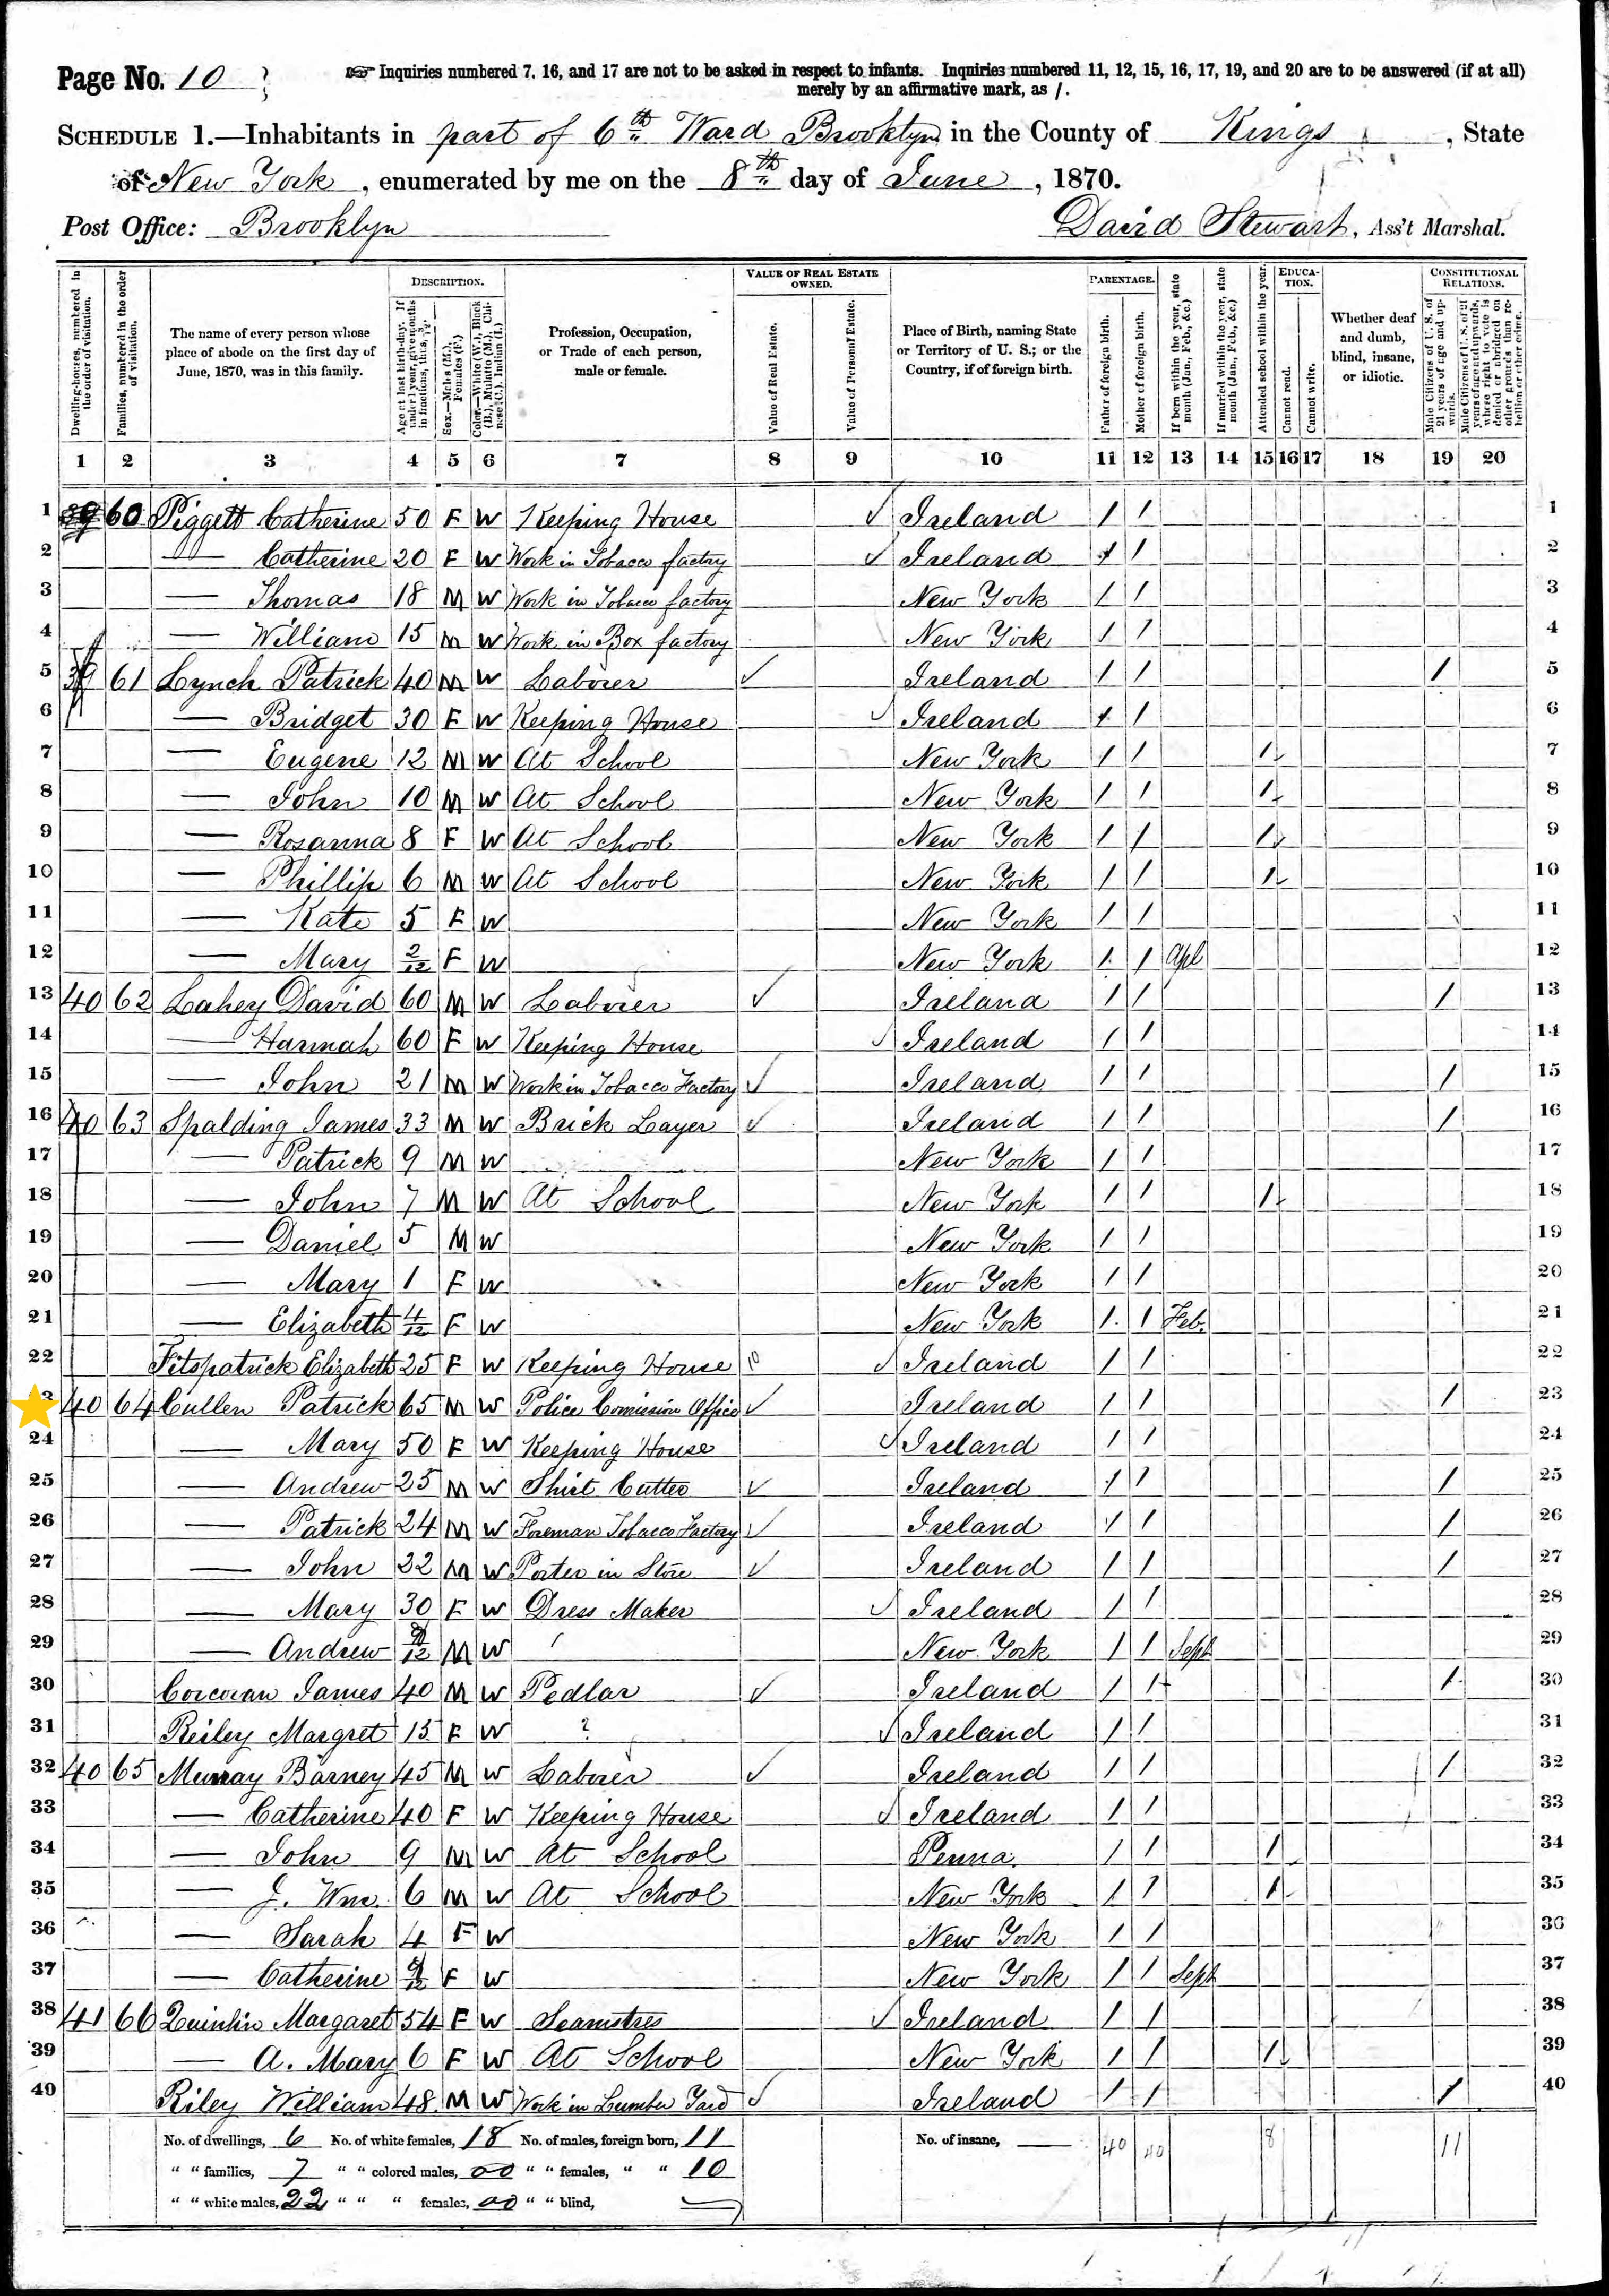 Page No. 10
☞ Inquiries numbered 7, 16, and 17 are not to be asked in respect to infants. Inquiries numbered 11, 12, 15, 16, 17, 19, and 20 are to be answered (if at all)
merely by an affirmative mark, as /.
SCHEDULE 1.—Inhabitants in part of 6th Ward Brooklyn in the County of Kings, State
of New York, enumerated by me on the 8th day of June, 1870.
Post Office: Brooklyn David Stewart, Ass't Marshal.
Dwelling-houses, numbered in the order of visitation.
Families, numbered in the order of visitation.
The name of every person whose place of abode on the first day of June, 1870, was in this family.
DESCRIPTION.
Age at last birth-day. If under 1 year, give months in fractions, thus, 3/12.
Sex.—Males (M.), Females (F.)
Color.—White (W.), Black (B.), Mulatto (M.), Chinese (C.), Indian (I.)
Profession, Occupation, or Trade of each person, male or female.
VALUE OF REAL ESTATE OWNED.
Value of Real Estate.
Value of Personal Estate.
Place of Birth, naming State or Territory of U. S.; or the Country, if of foreign birth.
PARENTAGE.
Father of foreign birth.
Mother of foreign birth.
If born within the year, state month (Jan., Feb., &c.)
If married within the year, state month (Jan., Feb., &c.)
Attended school within the year.
EDUCATION.
Cannot read.
Cannot write.
Whether deaf and dumb, blind, insane, or idiotic.
CONSTITUTIONAL RELATIONS.
Male Citizens of U. S. of 21 years of age and upwards.
Male Citizens of U. S. of 21 years of age and upwards, whose right to vote is denied or abridged on other grounds than rebellion or other crime.
1 2 3 4 5 6 7 8 9 10 11 12 13 14 15 16 17 18 19 20
1 39 60 Piggett Catherine 50 F W Keeping House ✓ Ireland / / 1
2 — Catherine 20 F W Work in Tobacco factory ✓ Ireland / / 2
3 — Thomas 18 M W Work in Tobacco factory New York / / 3
4 — William 15 M W Work in Box factory New York / / 4
5 39 61 Lynch Patrick 40 M W Laborer ✓ Ireland / / / 5
6 — Bridget 30 F W Keeping House ✓ Ireland / / 6
7 — Eugene 12 M W At School New York / / / 7
8 — John 10 M W At School New York / / / 8
9 — Rosanna 8 F W At School New York / / / 9
10 — Phillip 6 M W At School New York / / / 10
11 — Kate 5 F W New York / / 11
12 — Mary 2/12 F W New York / / Apl 12
13 40 62 Lahey David 60 M W Laborer ✓ Ireland / / / 13
14 — Hannah 60 F W Keeping House ✓ Ireland / / 14
15 — John 21 M W Work in Tobacco Factory ✓ Ireland / / / 15
16 40 63 Spalding James 33 M W Brick Layer ✓ Ireland / / / 16
17 — Patrick 9 M W New York / / 17
18 — John 7 M W At School New York / / / 18
19 — Daniel 5 M W New York / / 19
20 — Mary 1 F W New York / / 20
21 — Elizabeth 4/12 F W New York / / Feb. 21
22 Fitspatrick Elizabeth 25 F W Keeping House ✓ Ireland / / 22
40 64 Cullen Patrick 65 M W Police Comission Office ✓ Ireland / / / 23
24 — Mary 50 F W Keeping House ✓ Ireland / / 24
25 — Andrew 25 M W Shirt Cutter ✓ Ireland / / / 25
26 — Patrick 24 M W Foreman Tobacco Factory ✓ Ireland / / / 26
27 — John 22 M W Porter in Store ✓ Ireland / / / 27
28 — Mary 30 F W Dress Maker ✓ Ireland / / 28
29 — Andrew 9/12 M W New York / / Sept 29
30 Corcoran James 40 M W Pedlar ✓ Ireland / / / 30
31 Reiley Margret 15 F W ? ✓ Ireland / / 31
32 40 65 Murray Barney 45 M W Laborer ✓ Ireland / / / 32
33 — Catherine 40 F W Keeping House ✓ Ireland / / 33
34 — John 9 M W At School Penna. / / / 34
35 — J. Wm. 6 M W At School New York / / / 35
36 — Sarah 4 F W New York / / 36
37 — Catherine 9/12 F W New York / / Sept 37
38 41 66 Quinlin Margaret 54 F W Seamstres ✓ Ireland / / 38
39 — A. Mary 6 F W At School New York / / / 39
40 Riley William 48 M W Work in Lumber Yard ✓ Ireland / / / 40
No. of dwellings, 6 No. of white females, 18 No. of males, foreign born, 11 No. of insane, — 40 40 8 11
" " families, 7 " " colored males, 00 " " females, " " 10
" " white males, 22 " " " females, 00 " " blind, —